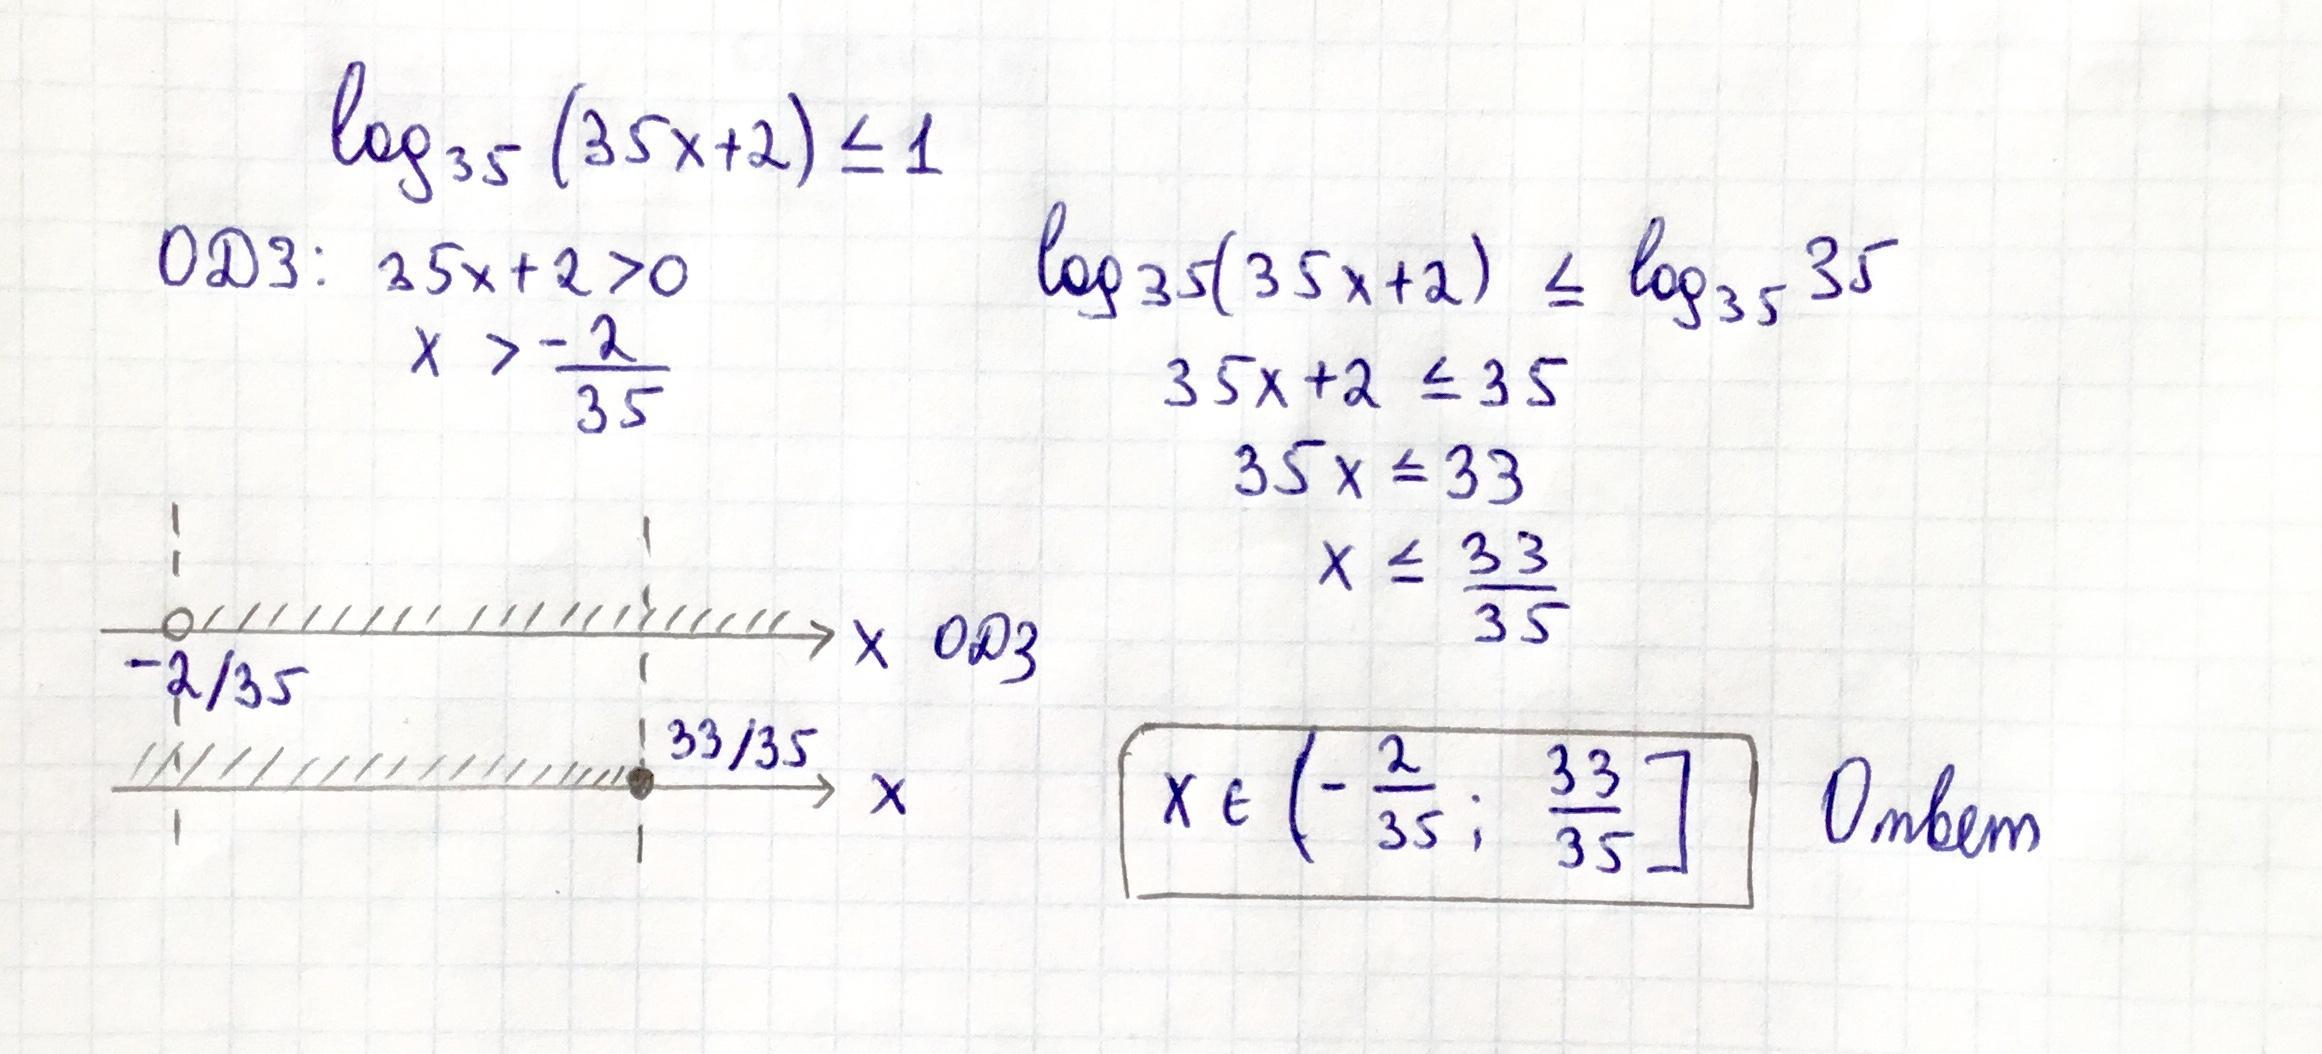 log₃₅ (35x+2) ≤ 1
ОДЗ: 35x+2>0
x > -2/35
log₃₅(35x+2) ≤ log₃₅ 35
35x+2 ≤ 35
35x ≤ 33
x ≤ 33/35
x ОДЗ
-2/35
33/35
x
x ∈ (-2/35; 33/35] Ответ